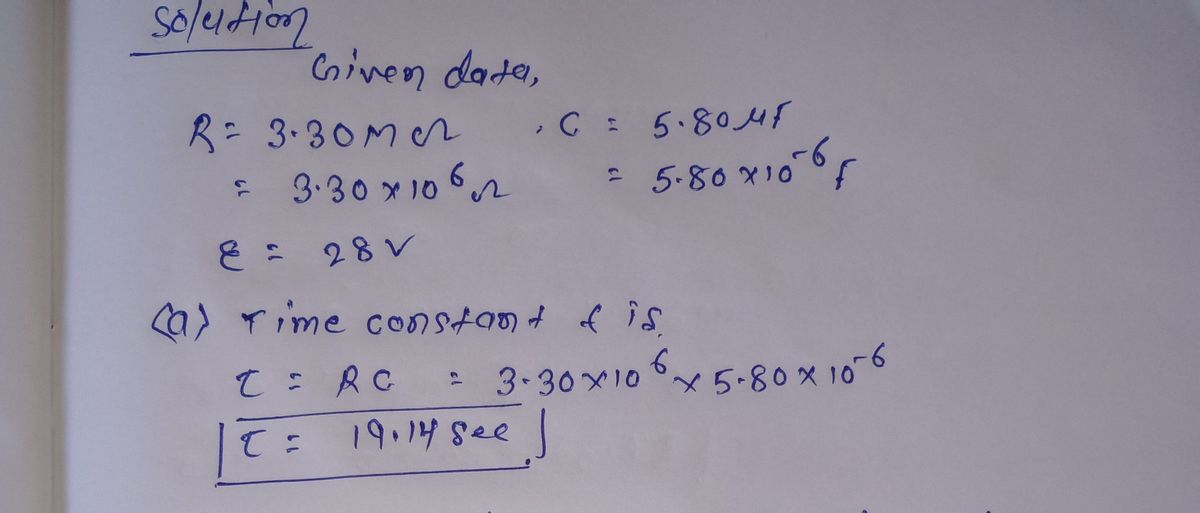 Solution
Given data,
R = 3.30 MΩ , C = 5.80 μf
= 3.30 × 10⁶ Ω = 5.80 × 10⁻⁶ f
ε = 28 V
(a) Time constant t is.
τ = RC = 3.30 × 10⁶ × 5.80 × 10⁻⁶
τ = 19.14 sec.